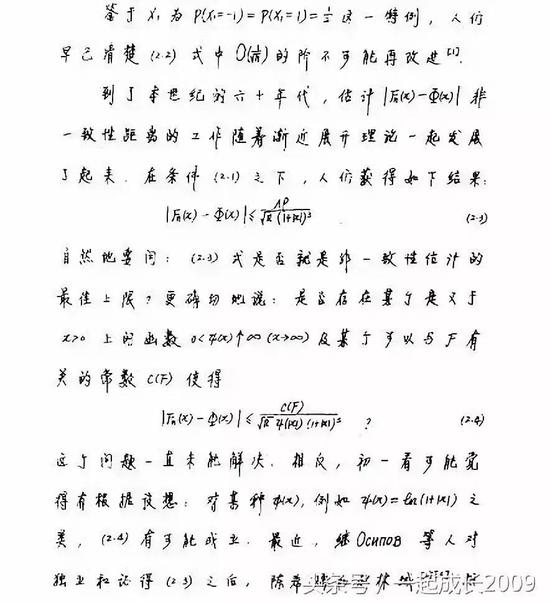 鉴于 X₁ 为 P(X₁=-1)=P(X₁=1)=½ 这一特例,人们
早已清楚 (2.2) 式中 O(1/√n) 的阶不可能再改进[1].
到了本世纪的六十年代,估计 |Fn(x)-Φ(x)| 非
一致性距离的工作随着渐近展开理论一起发展
了起来.在条件 (2.1) 之下,人们获得如下结果:
|Fn(x)-Φ(x)| ≤ Aρ/√n(1+|x|)³ (2.3)
自然地要问:(2.3) 式是否就是非一致性估计的
最佳上限?更确切地说:是否存在某个定义于
x>0 上的函数 0<ψ(x)↑∞(x→∞) 及某个可以与 F 有
关的常数 C(F) 使得
|Fn(x)-Φ(x)| ≤ C(F)/√n ψ(|x|)(1+|x|)³ ? (2.4)
这个问题一直未能解决.相反,初一看可能觉
得有根据设想:对某种 ψ(x),例如 ψ(x)=ln(1+|x|) 之
类,(2.4) 有可能成立.最近,继 Осипов 等人对
独立和证得 (2.3) 之后,陈希
头条号/一起成长2009